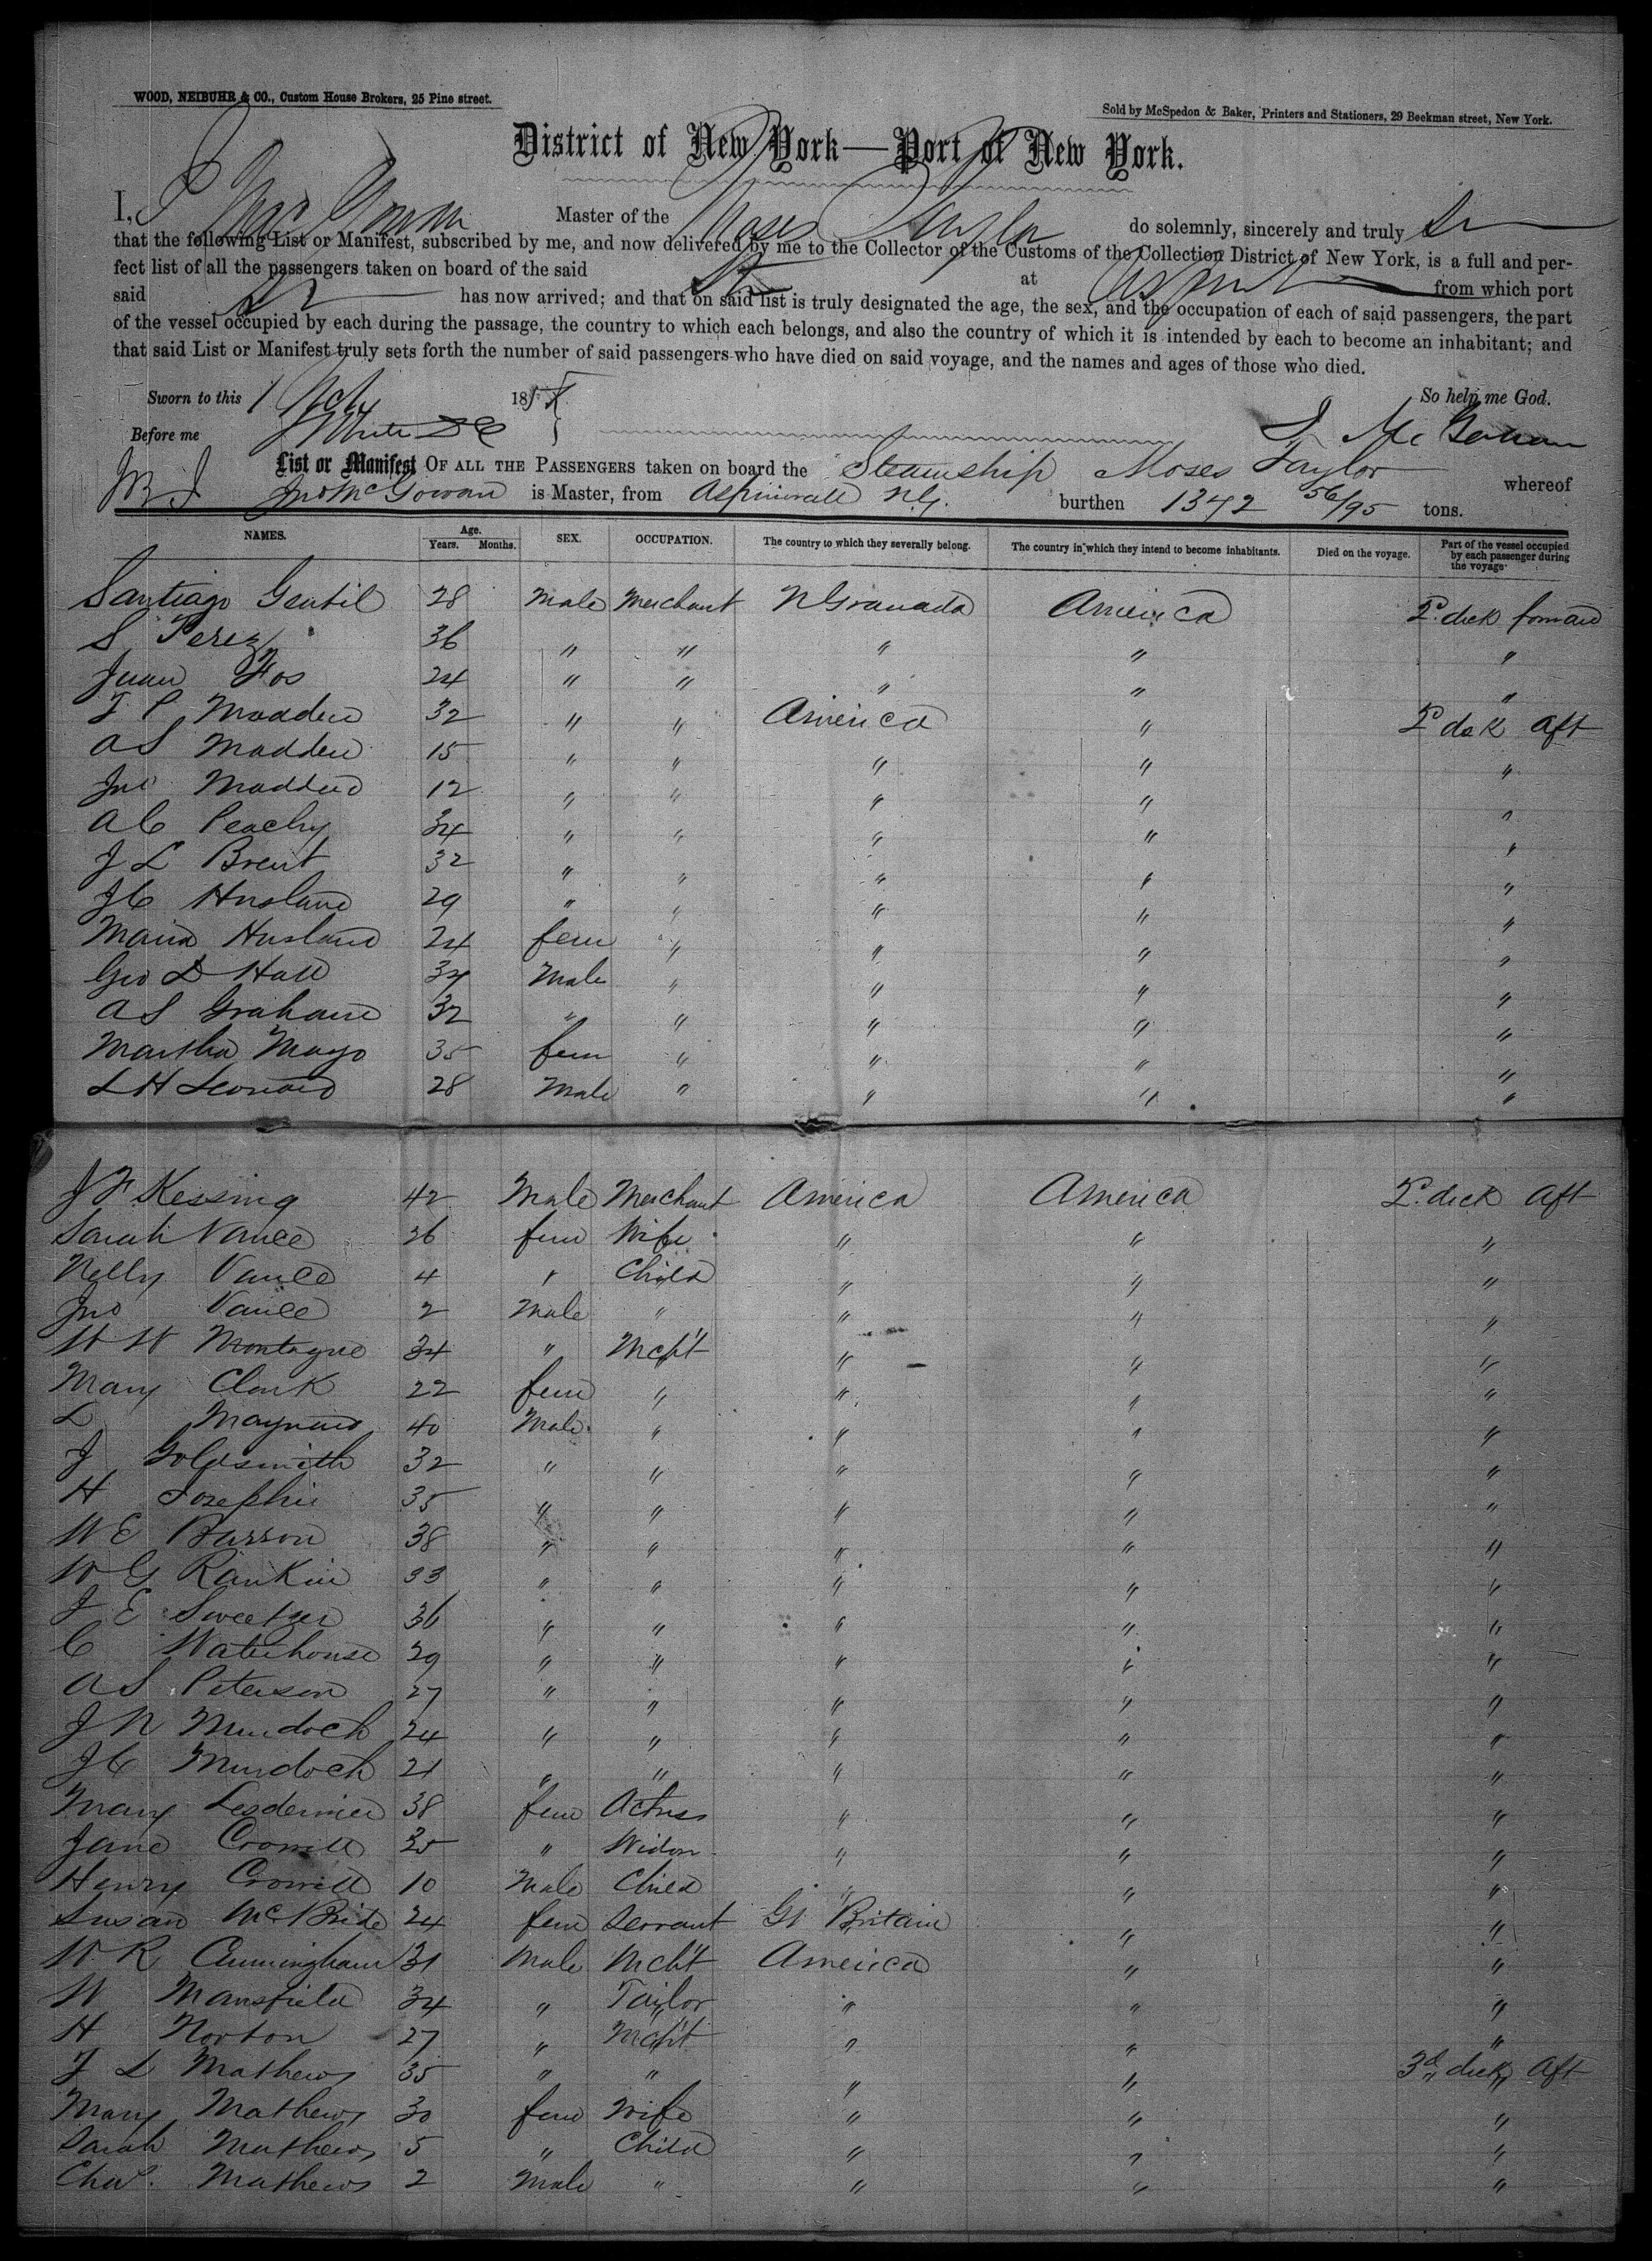 WOOD, NEIBUHR & CO., Custom House Brokers, 25 Pine street.
Sold by McSpedon & Baker, Printers and Stationers, 29 Beekman street, New York.
District of New York—Port of New York.
I, J McGowan Master of the Moses Taylor do solemnly, sincerely and truly
that the following List or Manifest, subscribed by me, and now delivered by me to the Collector of the Customs of the Collection District of New York, is a full and per-
fect list of all the passengers taken on board of the said at from which port
said has now arrived; and that on said list is truly designated the age, the sex, and the occupation of each of said passengers, the part
of the vessel occupied by each during the passage, the country to which each belongs, and also the country of which it is intended by each to become an inhabitant; and
that said List or Manifest truly sets forth the number of said passengers who have died on said voyage, and the names and ages of those who died.
Sworn to this 1 185 So help me God.
Before me White J McGowan
List or Manifest OF ALL THE PASSENGERS taken on board the Steamship Moses Taylor whereof
Jno McGowan is Master, from Aspinwall N.G. burthen 1342 56/95 tons.
NAMES. Age. Years. Months. SEX. OCCUPATION. The country to which they severally belong. The country in which they intend to become inhabitants. Died on the voyage. Part of the vessel occupied by each passenger during the voyage.
Santiago Gentil 28 Male Merchant N Granada America P. deck forward
S Perez 36 " " " " "
Juan Fos 24 " " " " "
F P Madden 32 " " America " P deck aft
A S Madden 15 " " " " "
Jno Madden 12 " " " " "
A C Peachy 34 " " " " "
J L Brent 32 " " " " "
J C Husland 29 " " " " "
Maria Husland 24 fem " " " "
Geo D Hall 34 Male " " " "
A S Graham 32 " " " " "
Martha Mayo 35 fem " " " "
L H Leonard 28 Male " " " "
J F Kessing 42 Male Merchant America America P. deck aft
Sarah Vance 26 fem Wife " " "
Nelly Vance 4 " Child " " "
Jno Vance 2 Male " " " "
W W Montague 34 " Mcht " " "
Mary Clark 22 fem " " " "
L Maynard 40 Male " " " "
J Goldsmith 32 " " " " "
H Josephi 35 " " " " "
W E Barron 38 " " " " "
W G Rankin 33 " " " " "
J E Sweetzer 36 " " " " "
C Waterhouse 29 " " " " "
A S Peterson 27 " " " " "
J N Murdoch 24 " " " " "
J C Murdoch 21 " " " " "
Mary Lesdernier 38 fem Actress " " "
Jane Crowell 35 " Widow " " "
Henry Crowell 10 Male Child " " "
Susan McBride 24 fem Servant Gt Britain " "
W R Cunningham 31 Male Mcht America " "
W Mansfield 34 " Tailor " " "
H Norton 27 " Mcht " " "
F L Mathews 35 " " " " 3d deck aft
Mary Mathews 30 fem Wife " " "
Sarah Mathews 5 " Child " " "
Chas. Mathews 2 Male " " " "